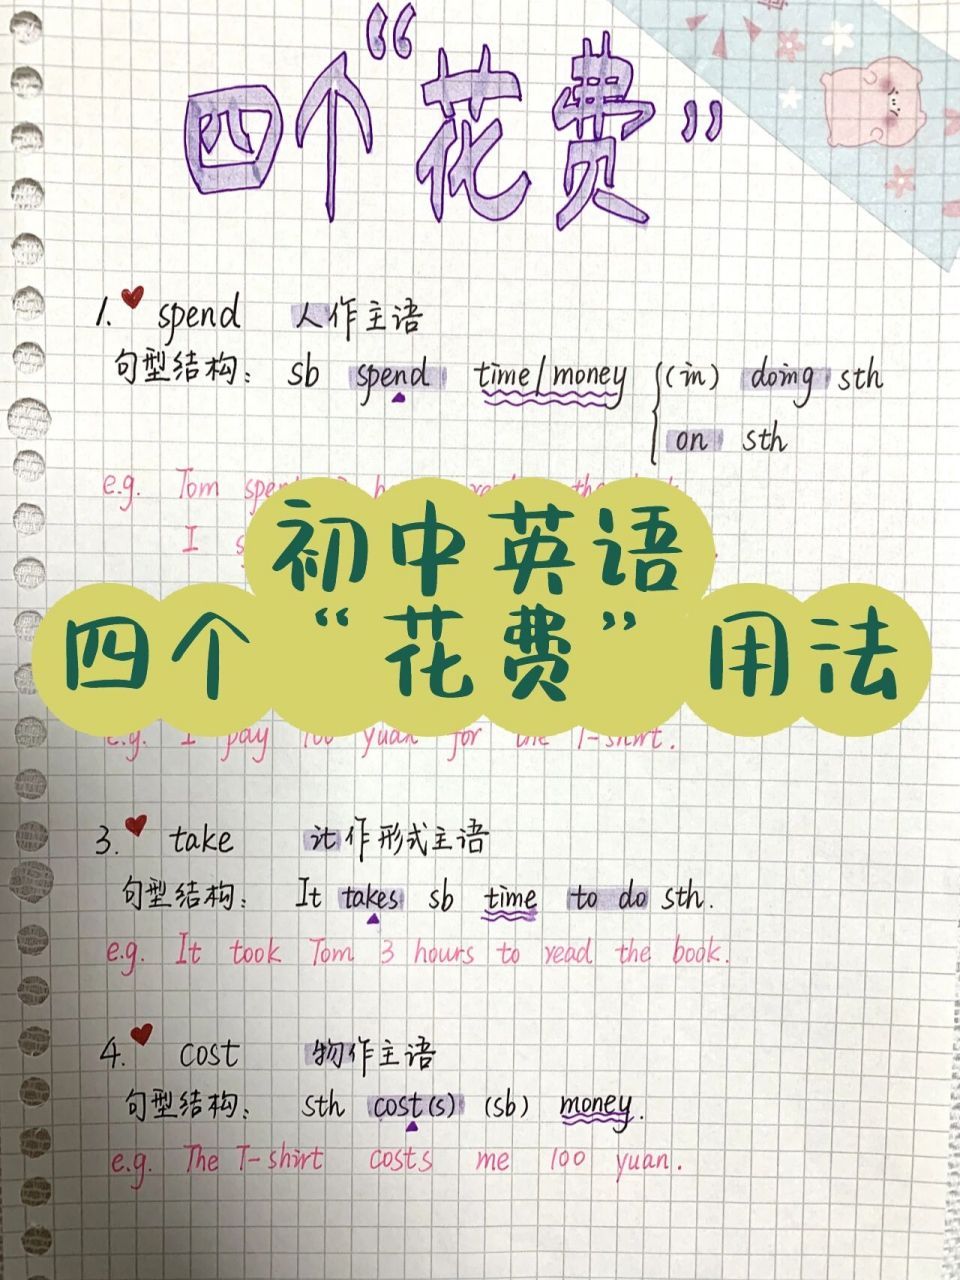 四个“花费”
1. spend 人作主语
句型结构: sb spend time/money (in) doing sth
on sth
e.g. Tom
I
初中英语
四个“花费”用法
e.g. I pay 100 yuan for the T-shirt.
3. take it作形式主语
句型结构: It takes sb time to do sth.
e.g. It took Tom 3 hours to read the book.
4. cost 物作主语
句型结构: sth cost(s) (sb) money.
e.g. The T-shirt costs me 100 yuan.